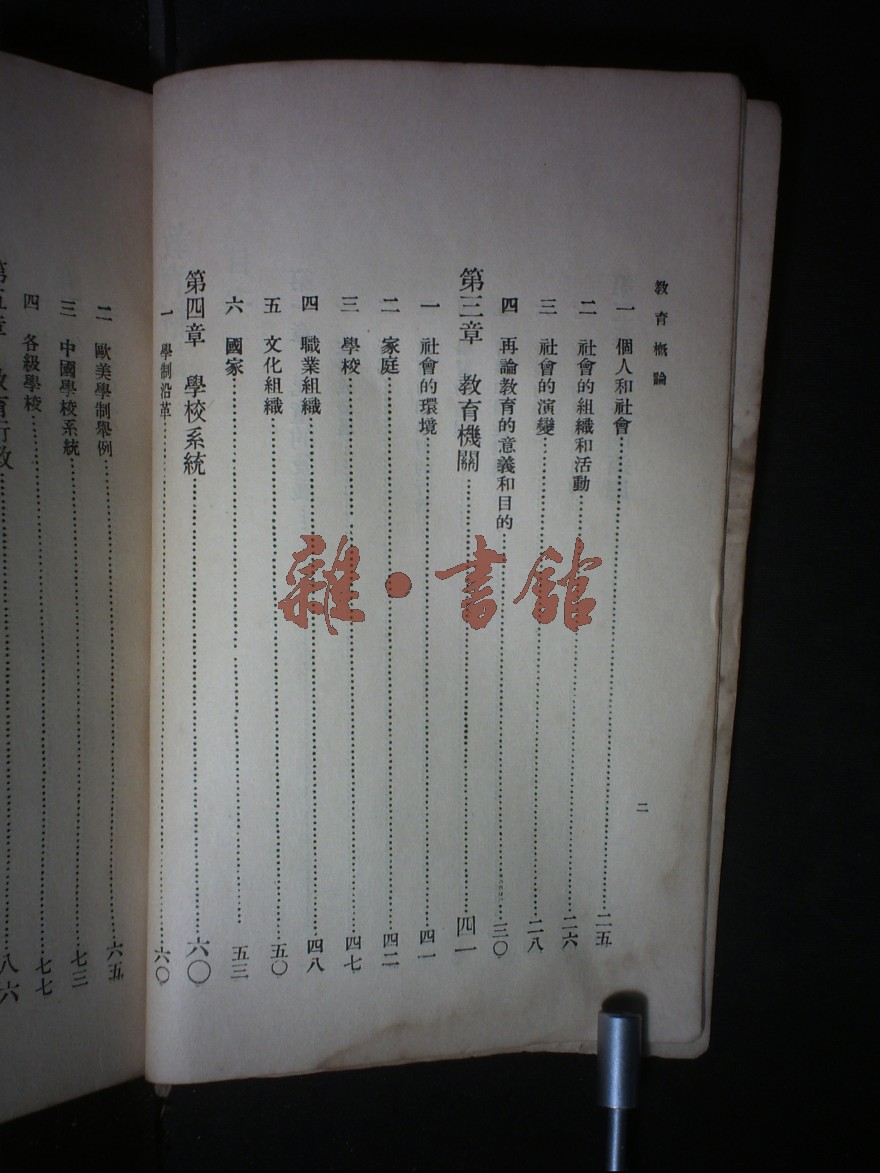 教育概論
二
一 個人和社會……二五
二 社會的組織和活動……二六
三 社會的演變……二八
四 再論教育的意義和目的……三〇
第三章 教育機關……四一
一 社會的環境……四一
二 家庭……四二
三 學校……四七
四 職業組織……四八
五 文化組織……五〇
六 國家……五三
第四章 學校系統……六〇
一 學制沿革……六〇
二 歐美學制舉例……六五
三 中國學校系統……七三
四 各級學校……七七
第五章 教育行政……八六
雜·書館